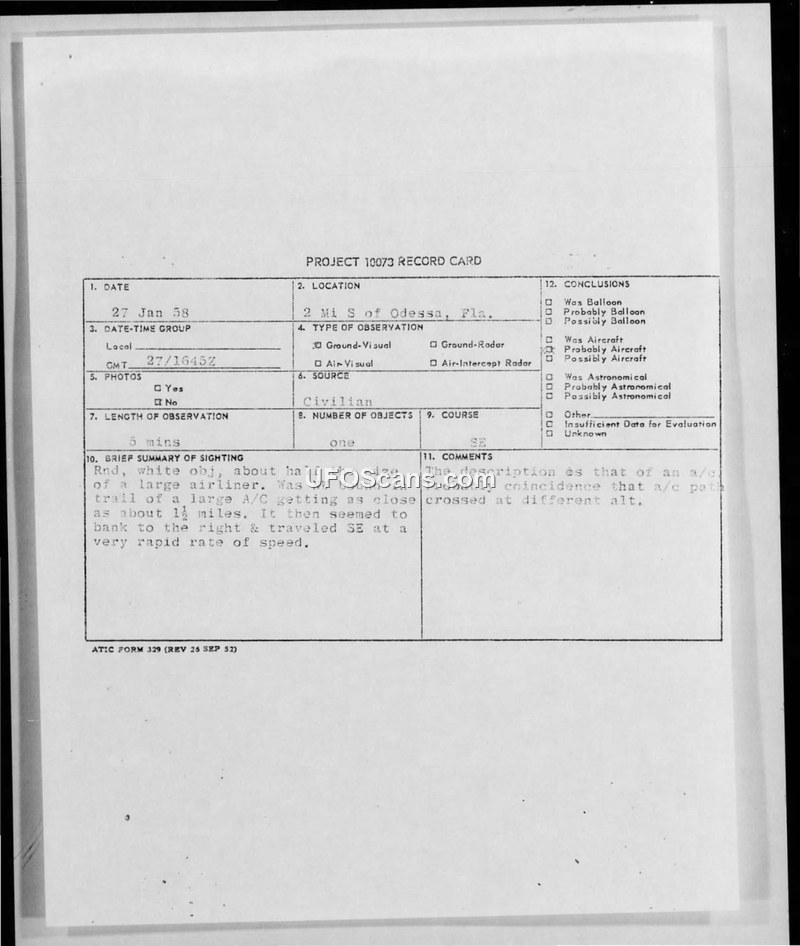 PROJECT 10073 RECORD CARD
1. DATE
27 Jan 58
2. LOCATION
2 Mi S of Odessa, Fla.
3. DATE-TIME GROUP
Local
GMT 27/1645Z
4. TYPE OF OBSERVATION
Ground-Visual
Ground-Radar
Air-Visual
Air-Intercept Radar
5. PHOTOS
Yes
No
6. SOURCE
Civilian
7. LENGTH OF OBSERVATION
5 mins
8. NUMBER OF OBJECTS
one
9. COURSE
SE
12. CONCLUSIONS
Was Balloon
Probably Balloon
Possibly Balloon
Was Aircraft
Probably Aircraft
Possibly Aircraft
Was Astronomical
Probably Astronomical
Possibly Astronomical
Other
Insufficient Data for Evaluation
Unknown
10. BRIEF SUMMARY OF SIGHTING
Rnd, white obj, about half the size
of a large airliner. Was
trail of a large A/C getting as close
as about 1½ miles. It then seemed to
bank to the right & traveled SE at a
very rapid rate of speed.
11. COMMENTS
The description is that of an a/c,
coincidence that a/c path
crossed at different alt.
UFOScans.com
ATIC FORM 329 (REV 26 SEP 52)